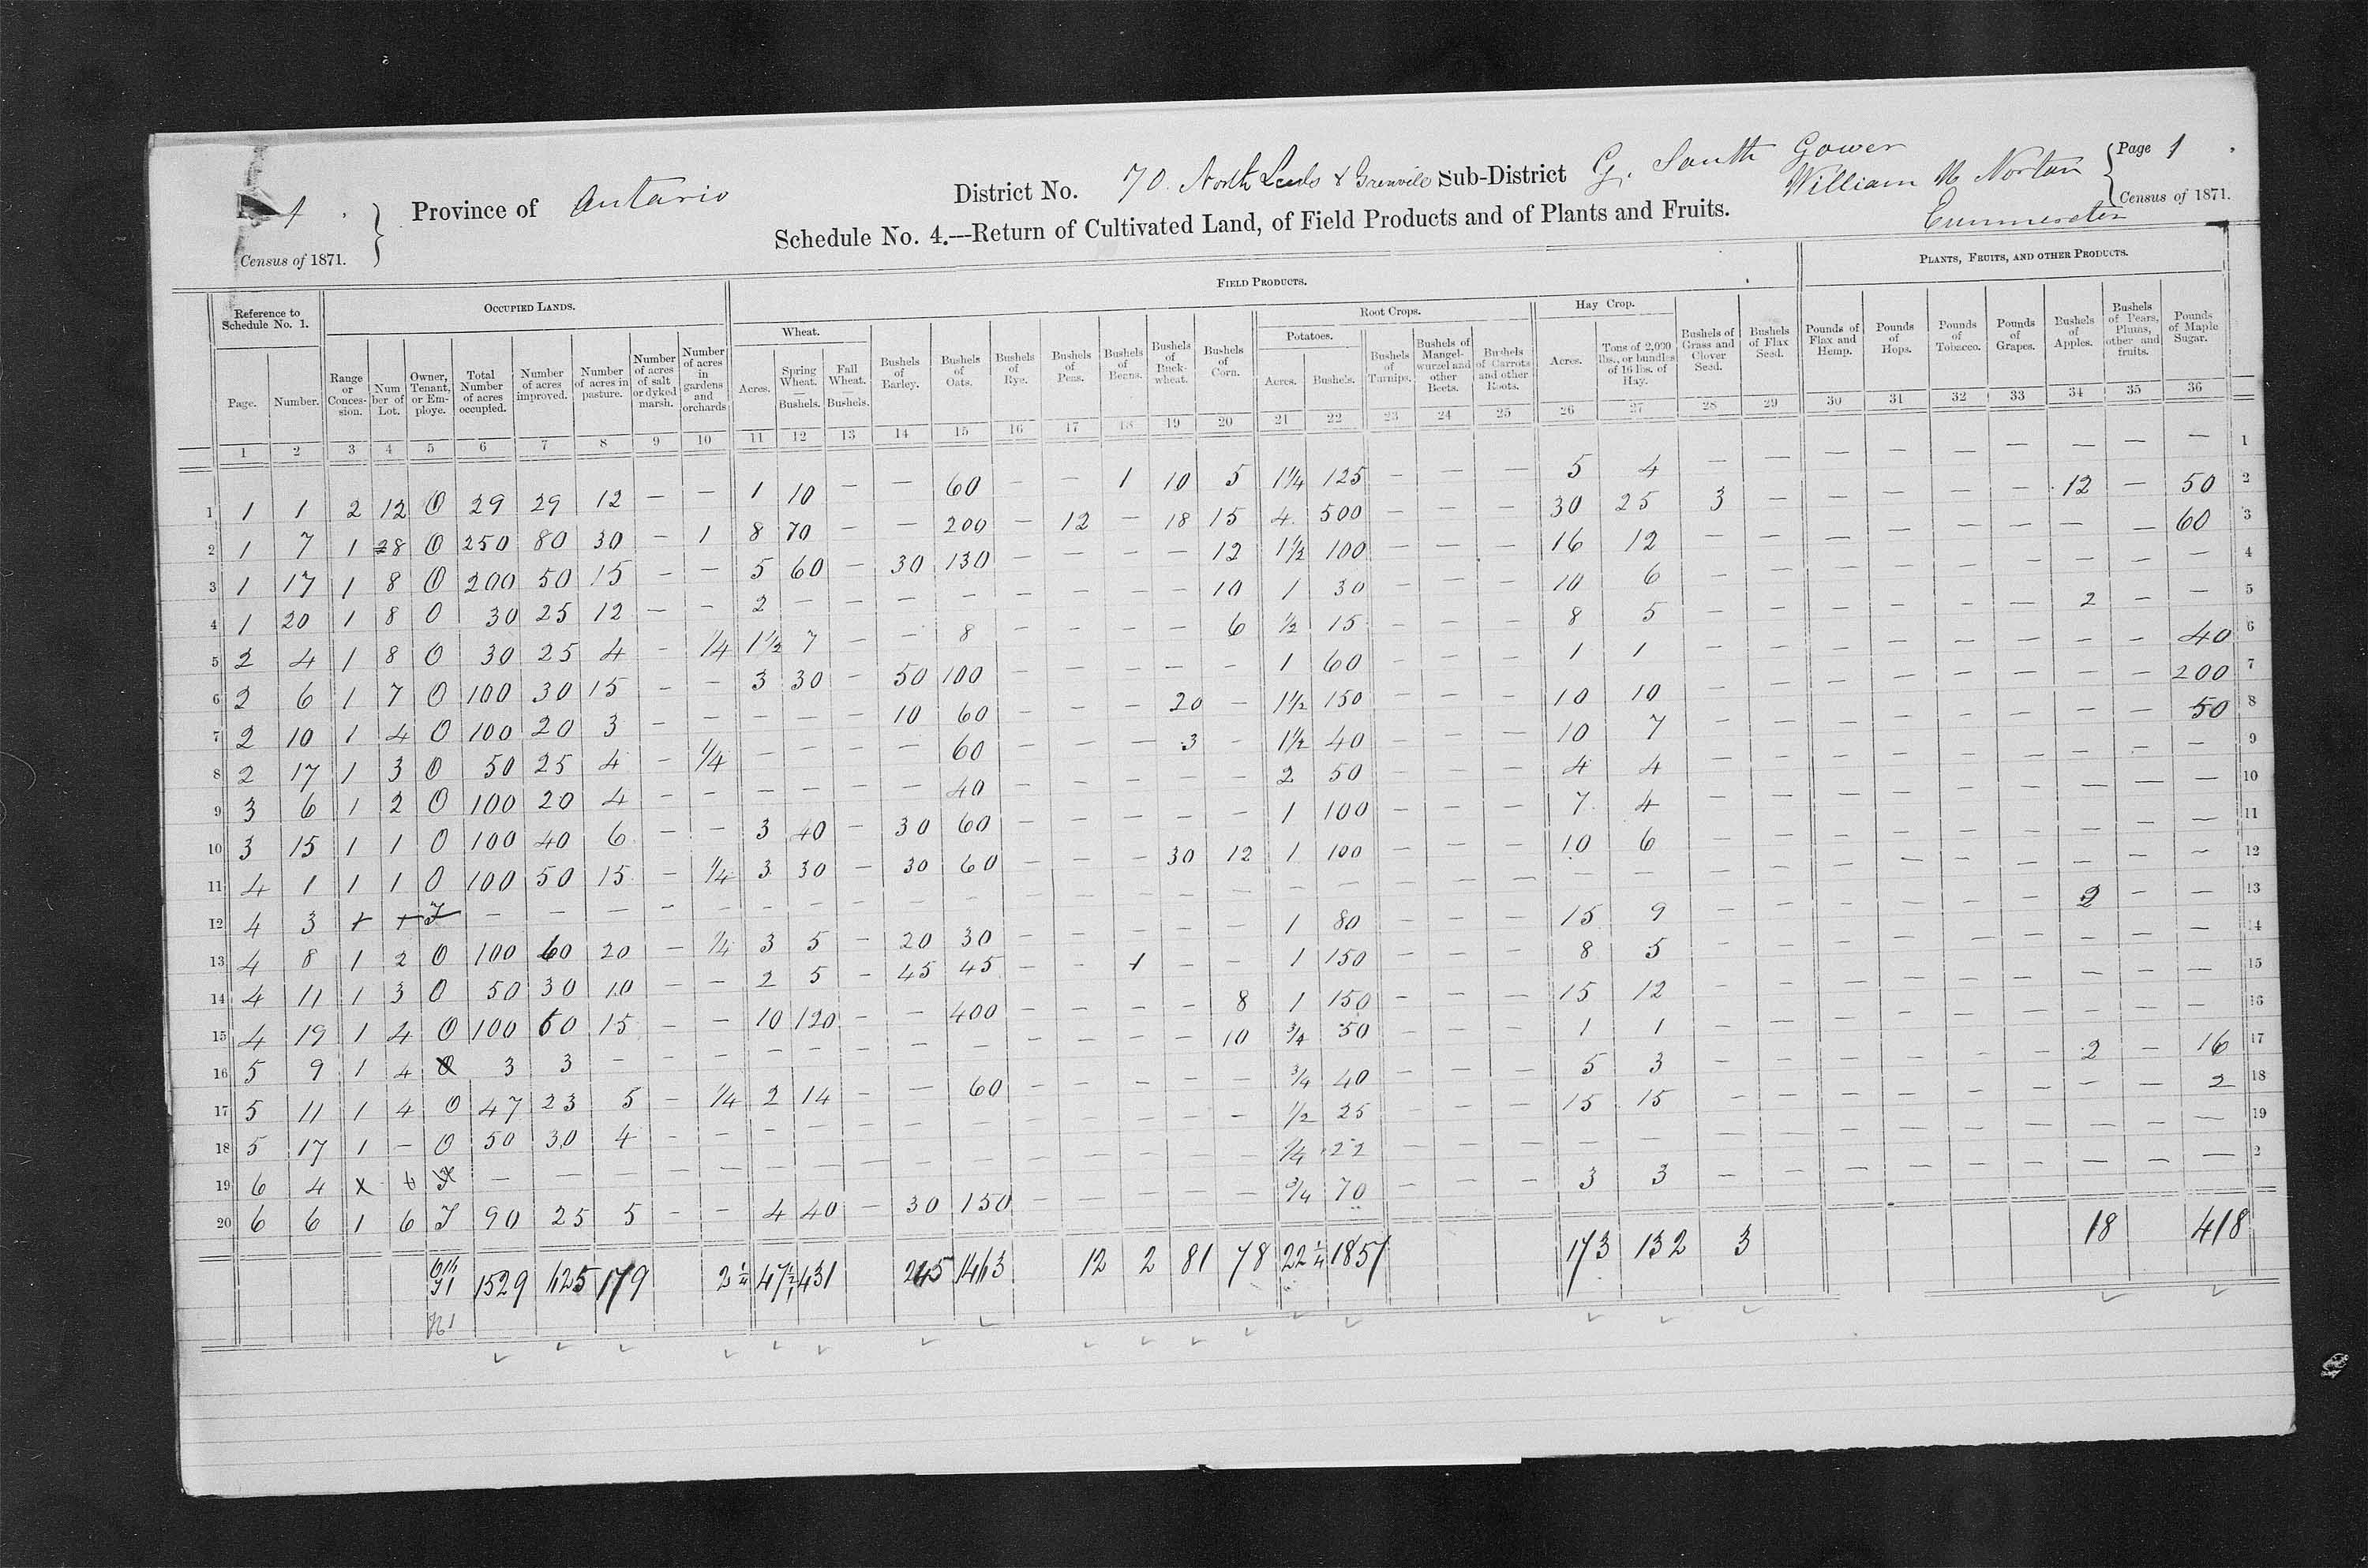 4.
Census of 1871.
Province of Ontario
District No. 70. North Leeds & Grenville Sub-District G. South Gower
William H Norton
Enumerator
Page 1
Census of 1871.
Schedule No. 4.—Return of Cultivated Land, of Field Products and of Plants and Fruits.
Reference to Schedule No. 1. Occupied Lands. Field Products. Plants, Fruits, and other Products.
Wheat. Root Crops. Potatoes. Hay Crop.
Page. Number. Range or Concession. Number of Lot. Owner, Tenant, or Employe. Total Number of acres occupied. Number of acres improved. Number of acres in pasture. Number of acres of salt or dyked marsh. Number of acres in gardens and orchards Acres. Spring Wheat. — Bushels. Fall Wheat. Bushels. Bushels of Barley. Bushels of Oats. Bushels of Rye. Bushels of Peas. Bushels of Beans. Bushels of Buckwheat. Bushels of Corn. Acres. Bushels. Bushels of Turnips. Bushels of Mangel-wurzel and other Beets. Bushels of Carrots and other Roots. Acres. Tons of 2,000 lbs., or bundles of 16 lbs. of Hay. Bushels of Grass and Clover Seed. Bushels of Flax Seed. Pounds of Flax and Hemp. Pounds of Hops. Pounds of Tobacco. Pounds of Grapes. Bushels of Apples. Bushels of Pears, Plums, and other fruits. Pounds of Maple Sugar.
1 2 3 4 5 6 7 8 9 10 11 12 13 14 15 16 17 18 19 20 21 22 23 24 25 26 27 28 29 30 31 32 33 34 35 36
1 1 1 2 12 O 29 29 12 — — 1 10 — — 60 — — 1 10 5 1¼ 125 — — — 5 4 — — — — — — — — — 1
2 1 7 1 28 O 250 80 30 — 1 8 70 — — 200 — 12 — 18 15 4 500 — — — 30 25 3 — — — — — 12 — 50 2
3 1 17 1 8 O 200 50 15 — — 5 60 — 30 130 — — — — 12 1½ 100 — — — 16 12 — — — — — — — — 60 3
4 1 20 1 8 O 30 25 12 — — 2 — — — — — — — — 10 1 30 — — — 10 6 — — — — — — — — — 4
5 2 4 1 8 O 30 25 4 — ¼ 1½ 7 — — 8 — — — — 6 ½ 15 — — — 8 5 — — — — — — 2 — — 5
6 2 6 1 7 O 100 30 15 — — 3 30 — 50 100 — — — — — 1 60 — — — 1 1 — — — — — — — — 40 6
7 2 10 1 4 O 100 20 3 — — — — — 10 60 — — — 20 — 1½ 150 — — — 10 10 — — — — — — — — 200 7
8 2 17 1 3 O 50 25 4 — ¼ — — — — 60 — — — 3 — 1½ 40 — — — 10 7 — — — — — — — — 50 8
9 3 6 1 2 O 100 20 4 — — — — — — 40 — — — — — 2 50 — — — 4 4 — — — — — — — — — 9
10 3 15 1 1 O 100 40 6 — — 3 40 — 30 60 — — — — — 1 100 — — — 7 4 — — — — — — — — — 10
11 4 1 1 1 O 100 50 15 — ¼ 3 30 — 30 60 — — — 30 12 1 100 — — — 10 6 — — — — — — — — — 11
12 4 3 + + T — — — — — — — — — — — — — — — — — — — — — — — — — — — — — — — 12
13 4 8 1 2 O 100 60 20 — ¼ 3 5 — 20 30 — — — — — 1 80 — — — 15 9 — — — — — — 2 — — 13
14 4 11 1 3 O 50 30 10 — — 2 5 — 45 45 — — 1 — — 1 150 — — — 8 5 — — — — — — — — — 14
15 4 19 1 4 O 100 60 15 — — 10 120 — — 400 — — — — 8 1 150 — — — 15 12 — — — — — — — — — 15
16 5 9 1 4 O 3 3 — — — — — — — — — — — — 10 ¾ 50 — — — 1 1 — — — — — — — — — 16
17 5 11 1 4 O 47 23 5 — ¼ 2 14 — — 60 — — — — — ¾ 40 — — — 5 3 — — — — — — 2 — 16 17
18 5 17 1 — O 50 30 4 — — — — — — — — — — — — ½ 25 — — — 15 15 — — — — — — — — 2 18
19 6 4 x T — — — — — — — — — — — — — — — ¼ 22 — — — — — — — — — — — — — — 19
20 6 6 1 6 T 90 25 5 — — 4 40 — 30 150 — — — — — ¾ 70 — — — 3 3 — — — — — — — — — 2
T1 1529 625 179 2¼ 47½ 431 245 1463 12 2 81 78 22¼ 1857 173 132 3 18 418